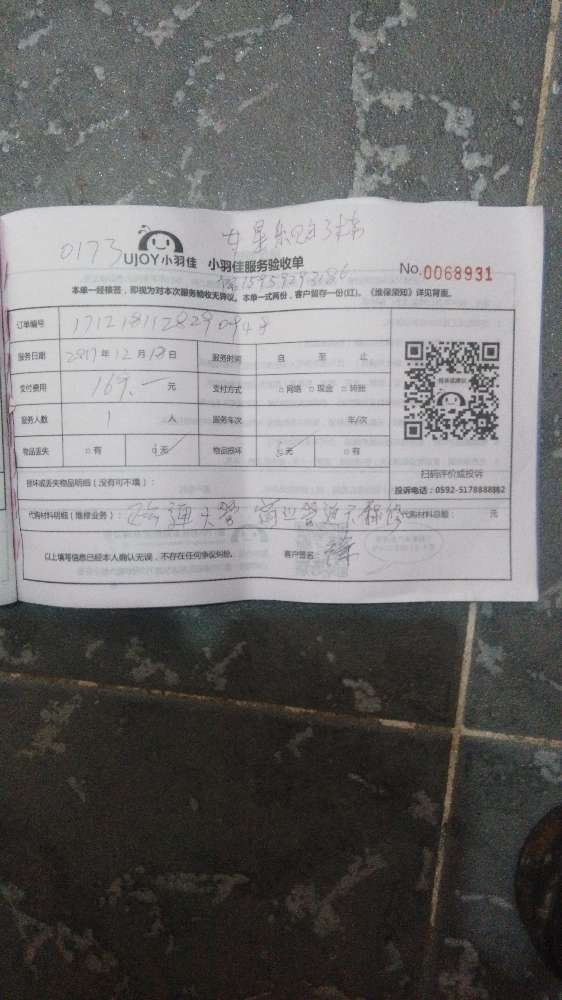 0173
UJOY小羽佳 小羽佳服务验收单 No.0068931
本单一经核签，即视为对本次服务验收无异议。本单一式两份，客户留存一份(红)。《维保须知》详见背面。
订单编号 1712181128290948
服务日期 2017年12月18日 服务时间 自 至 止
支付费用 169.— 元 支付方式 □网络 □现金 □转账
服务人数 1 人 服务车次 年/次
物品丢失 □有 □无 物品损坏 □无 □有
扫码评价或投诉
损坏或丢失物品明细（没有可不填）：
投诉电话：0592-5178888转2
代购材料明细（维修业务）： 疏通大管 商业管道不保修 代购材料总额： 元
以上填写信息已经本人确认无误，不存在任何争议纠纷。 客户签名：